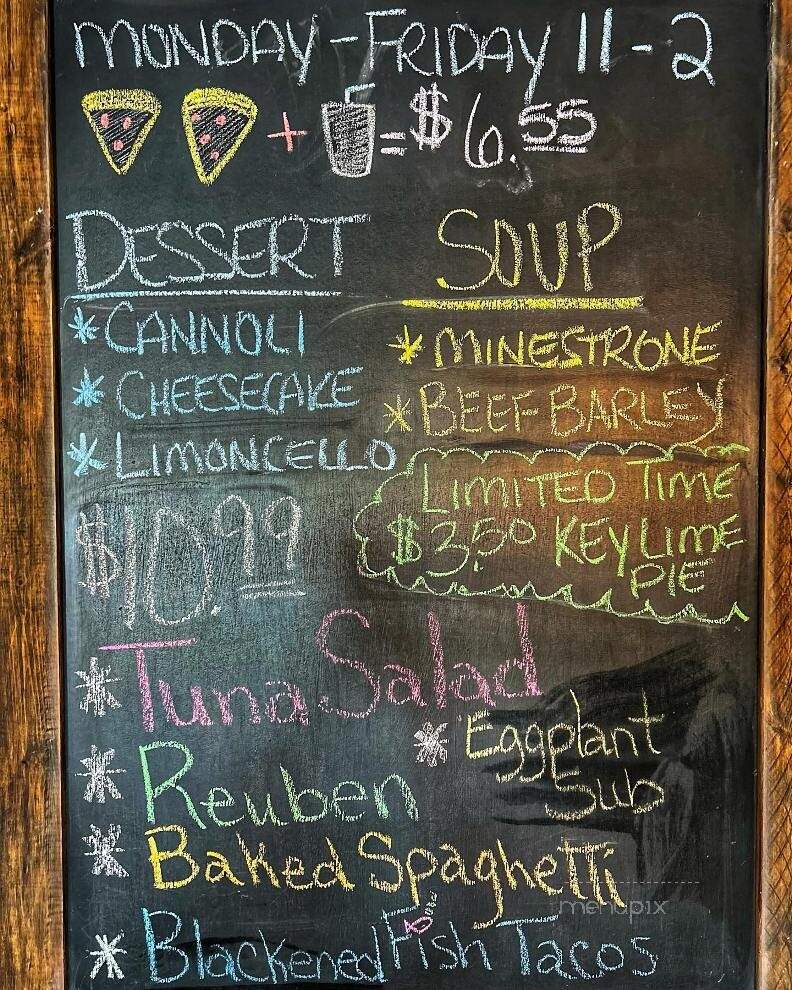 MONDAY - FRIDAY 11 - 2
+ = $6.55
DESSERT
* CANNOLI
* CHEESECAKE
* LIMONCELLO
SOUP
* MINESTRONE
* BEEF BARLEY
LIMITED TIME
$3.50 KEY LIME
PIE
$10.99
* Tuna Salad
* Eggplant
Sub
* Reuben
* Baked Spaghetti
* Blackened Fish Tacos
menupix